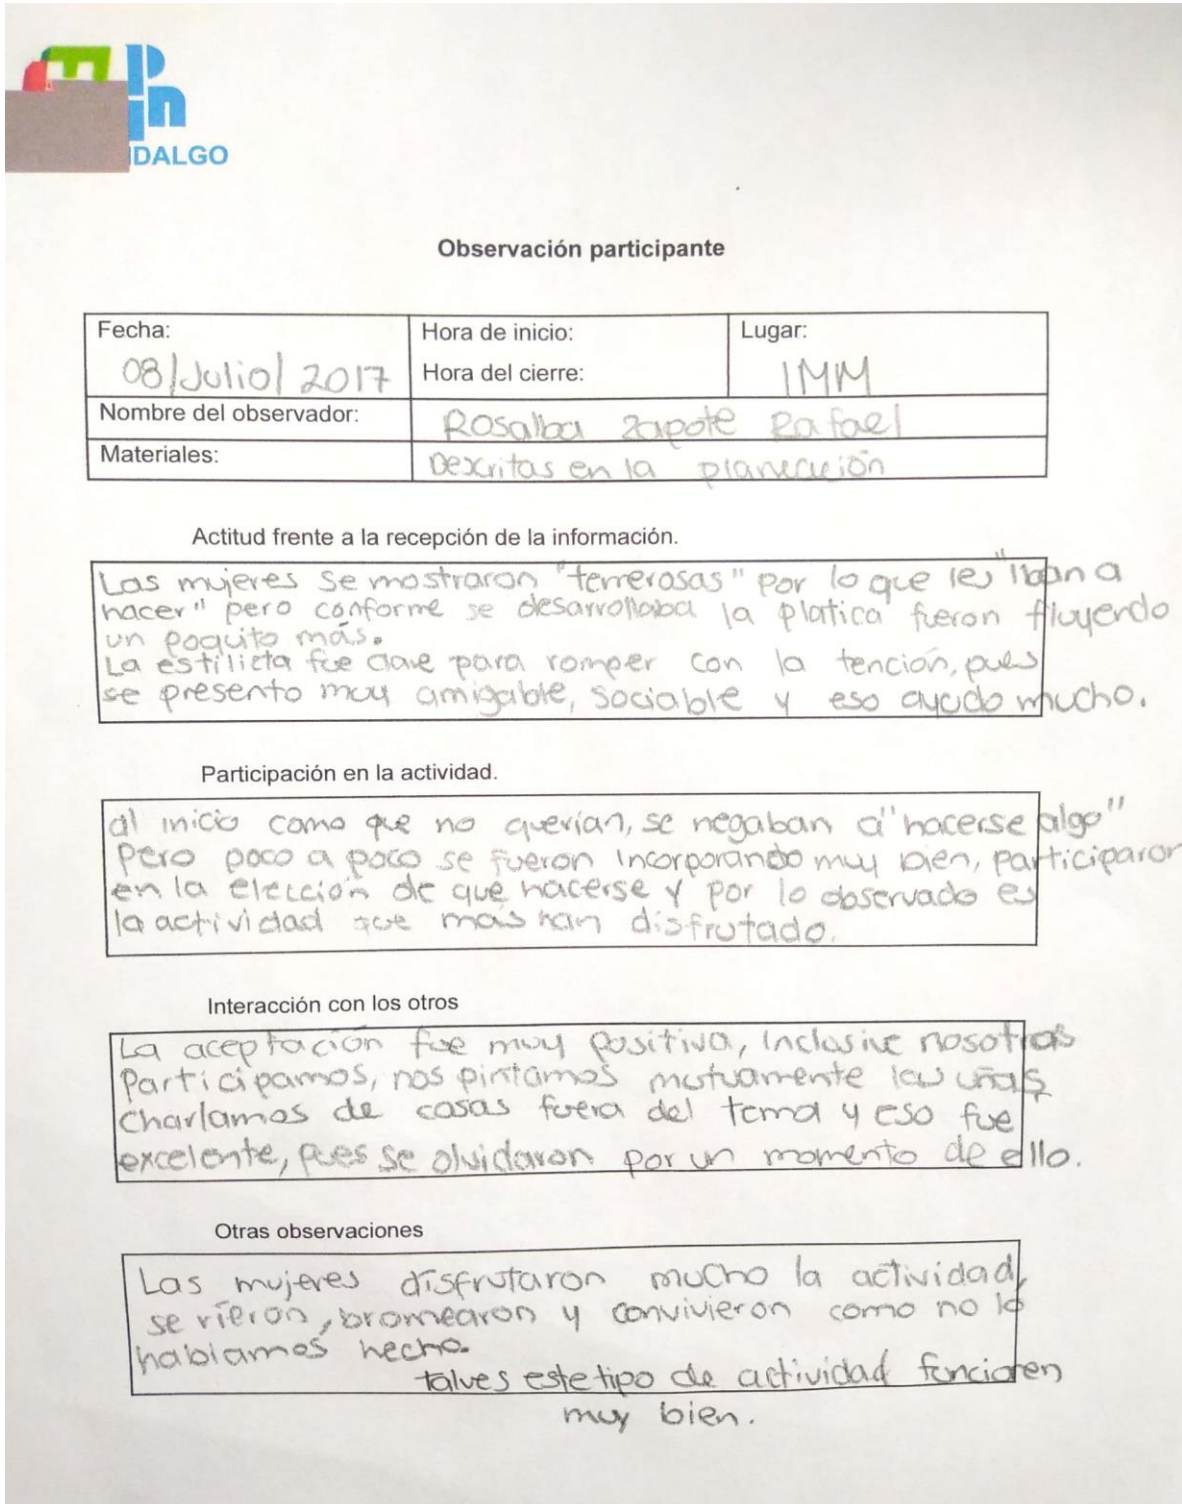 Pn
IDALGO
Observación participante
Fecha:
08/Julio/2017
Hora de inicio:
Hora del cierre:
Lugar:
IMM
Nombre del observador:
Rosalba Zapote Rafael
Materiales:
Descritas en la planeación
Actitud frente a la recepción de la información.
Las mujeres se mostraron "temerosas" por lo que les "iban a
hacer" pero conforme se desarrollaba la platica fueron fluyendo
un poquito más.
La estilista fue clave para romper con la tención, pues
se presento muy amigable, sociable y eso ayudo mucho.
Participación en la actividad.
al inicio como que no querían, se negaban a "hacerse algo"
Pero poco a poco se fueron incorporando muy bien, participaron
en la elección de que hacerse y por lo observado es
la actividad que más han disfrutado.
Interacción con los otros
La aceptación fue muy positiva, inclusive nosotras
Participamos, nos pintamos mutuamente las uñas
Charlamos de cosas fuera del tema y eso fue
excelente, pues se olvidaron por un momento de ello.
Otras observaciones
Las mujeres disfrutaron mucho la actividad,
se rieron, bromearon y convivieron como no lo
habíamos hecho.
talves este tipo de actividad funcionen
muy bien.